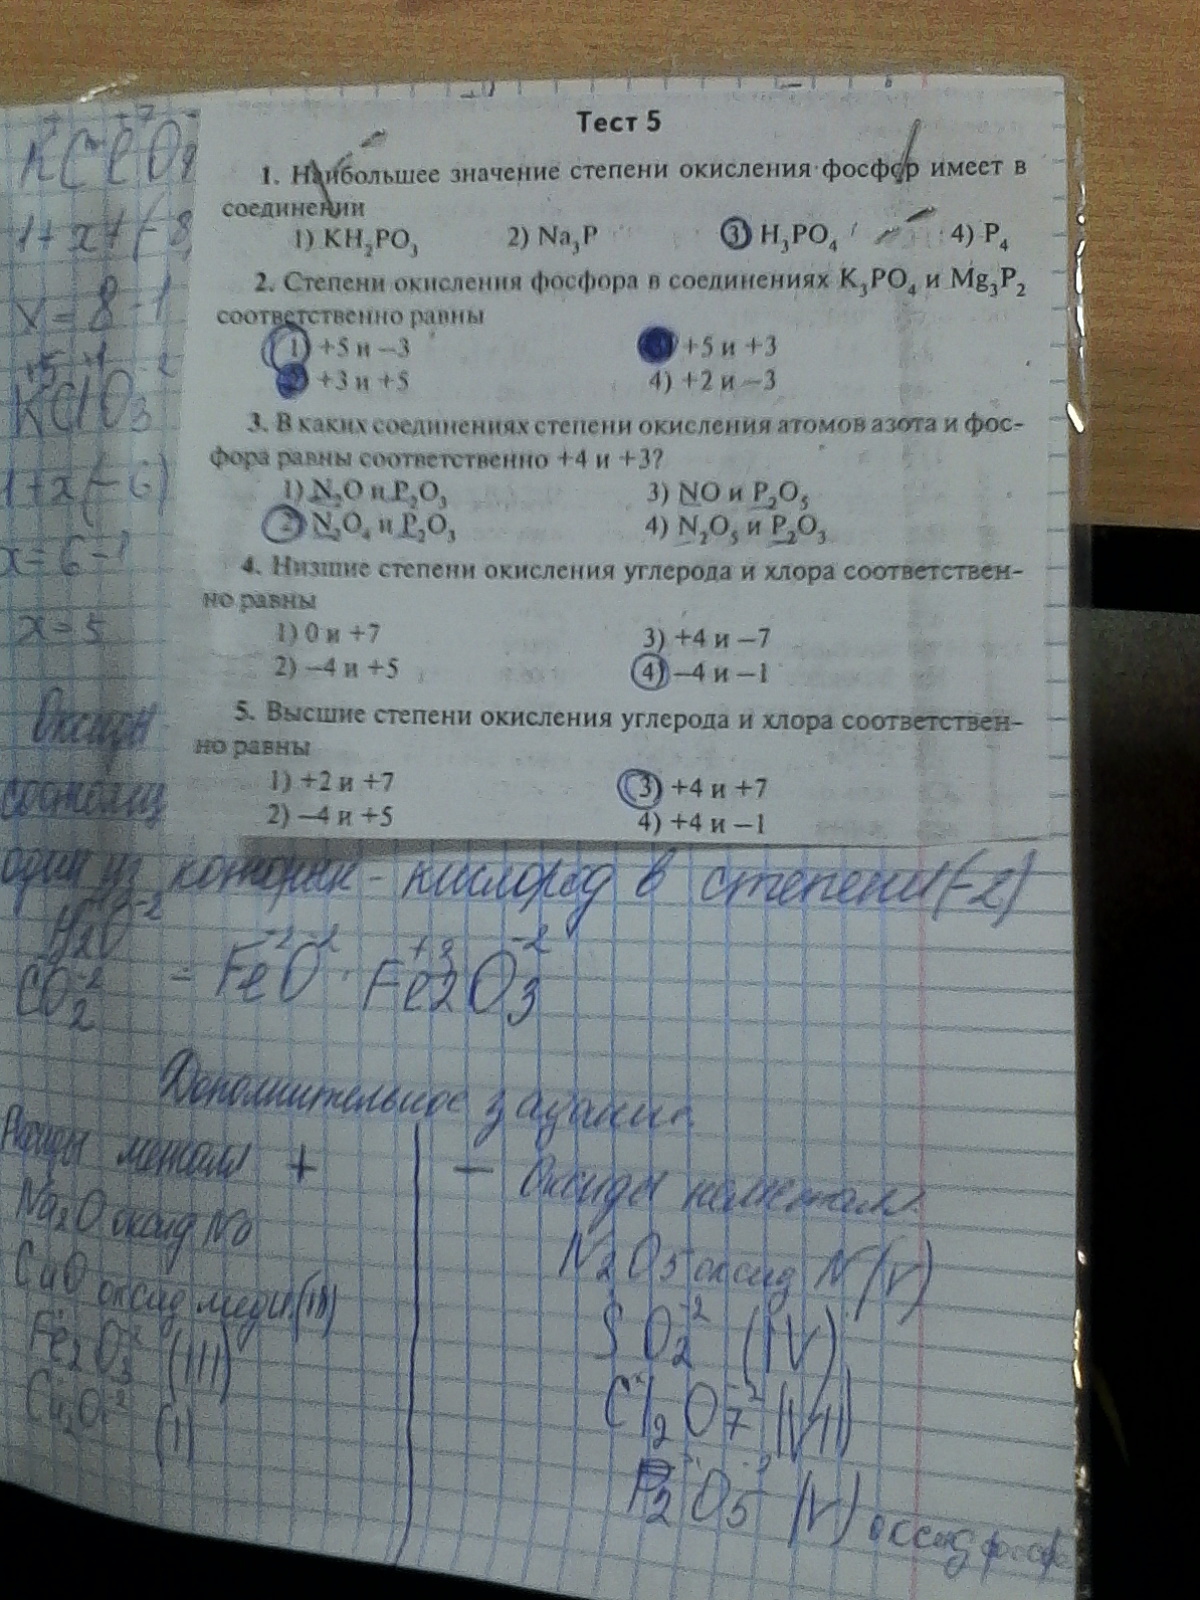 Тест 5
1. Наибольшее значение степени окисления фосфор имеет в
соединении
1) KH₂PO₃ 2) Na₃P 3) H₃PO₄ 4) P₄
2. Степени окисления фосфора в соединениях K₃PO₄ и Mg₃P₂
соответственно равны
1) +5 и −3 3) +5 и +3
2) +3 и +5 4) +2 и −3
3. В каких соединениях степени окисления атомов азота и фос-
фора равны соответственно +4 и +3?
1) N₂O и P₂O₃ 3) NO и P₂O₅
2) N₂O₄ и P₂O₃ 4) N₂O₅ и P₂O₃
4. Низшие степени окисления углерода и хлора соответствен-
но равны
1) 0 и +7 3) +4 и −7
2) −4 и +5 4) −4 и −1
5. Высшие степени окисления углерода и хлора соответствен-
но равны
1) +2 и +7 3) +4 и +7
2) −4 и +5 4) +4 и −1
1+x+(-8
x=8-1
KClO₃
1+x(-6)
x=6-1
x=5
Оксиды
один из которых - кислород в степени(-2)
H2O-2
CO₂-2 = FeO-2 Fe2O3 +3 -2
Дополнительное задание
металл + − Оксиды неметалл.
Na₂O оксид Na
N₂O5 оксид N(V)
CuO оксид меди
SO₂-2 (IV)
Fe₂O₃-2 (III)
Cl₂O7-2 (VII)
Cu₂O-2 (I)
P₂O5-2 (V) оксид фосф